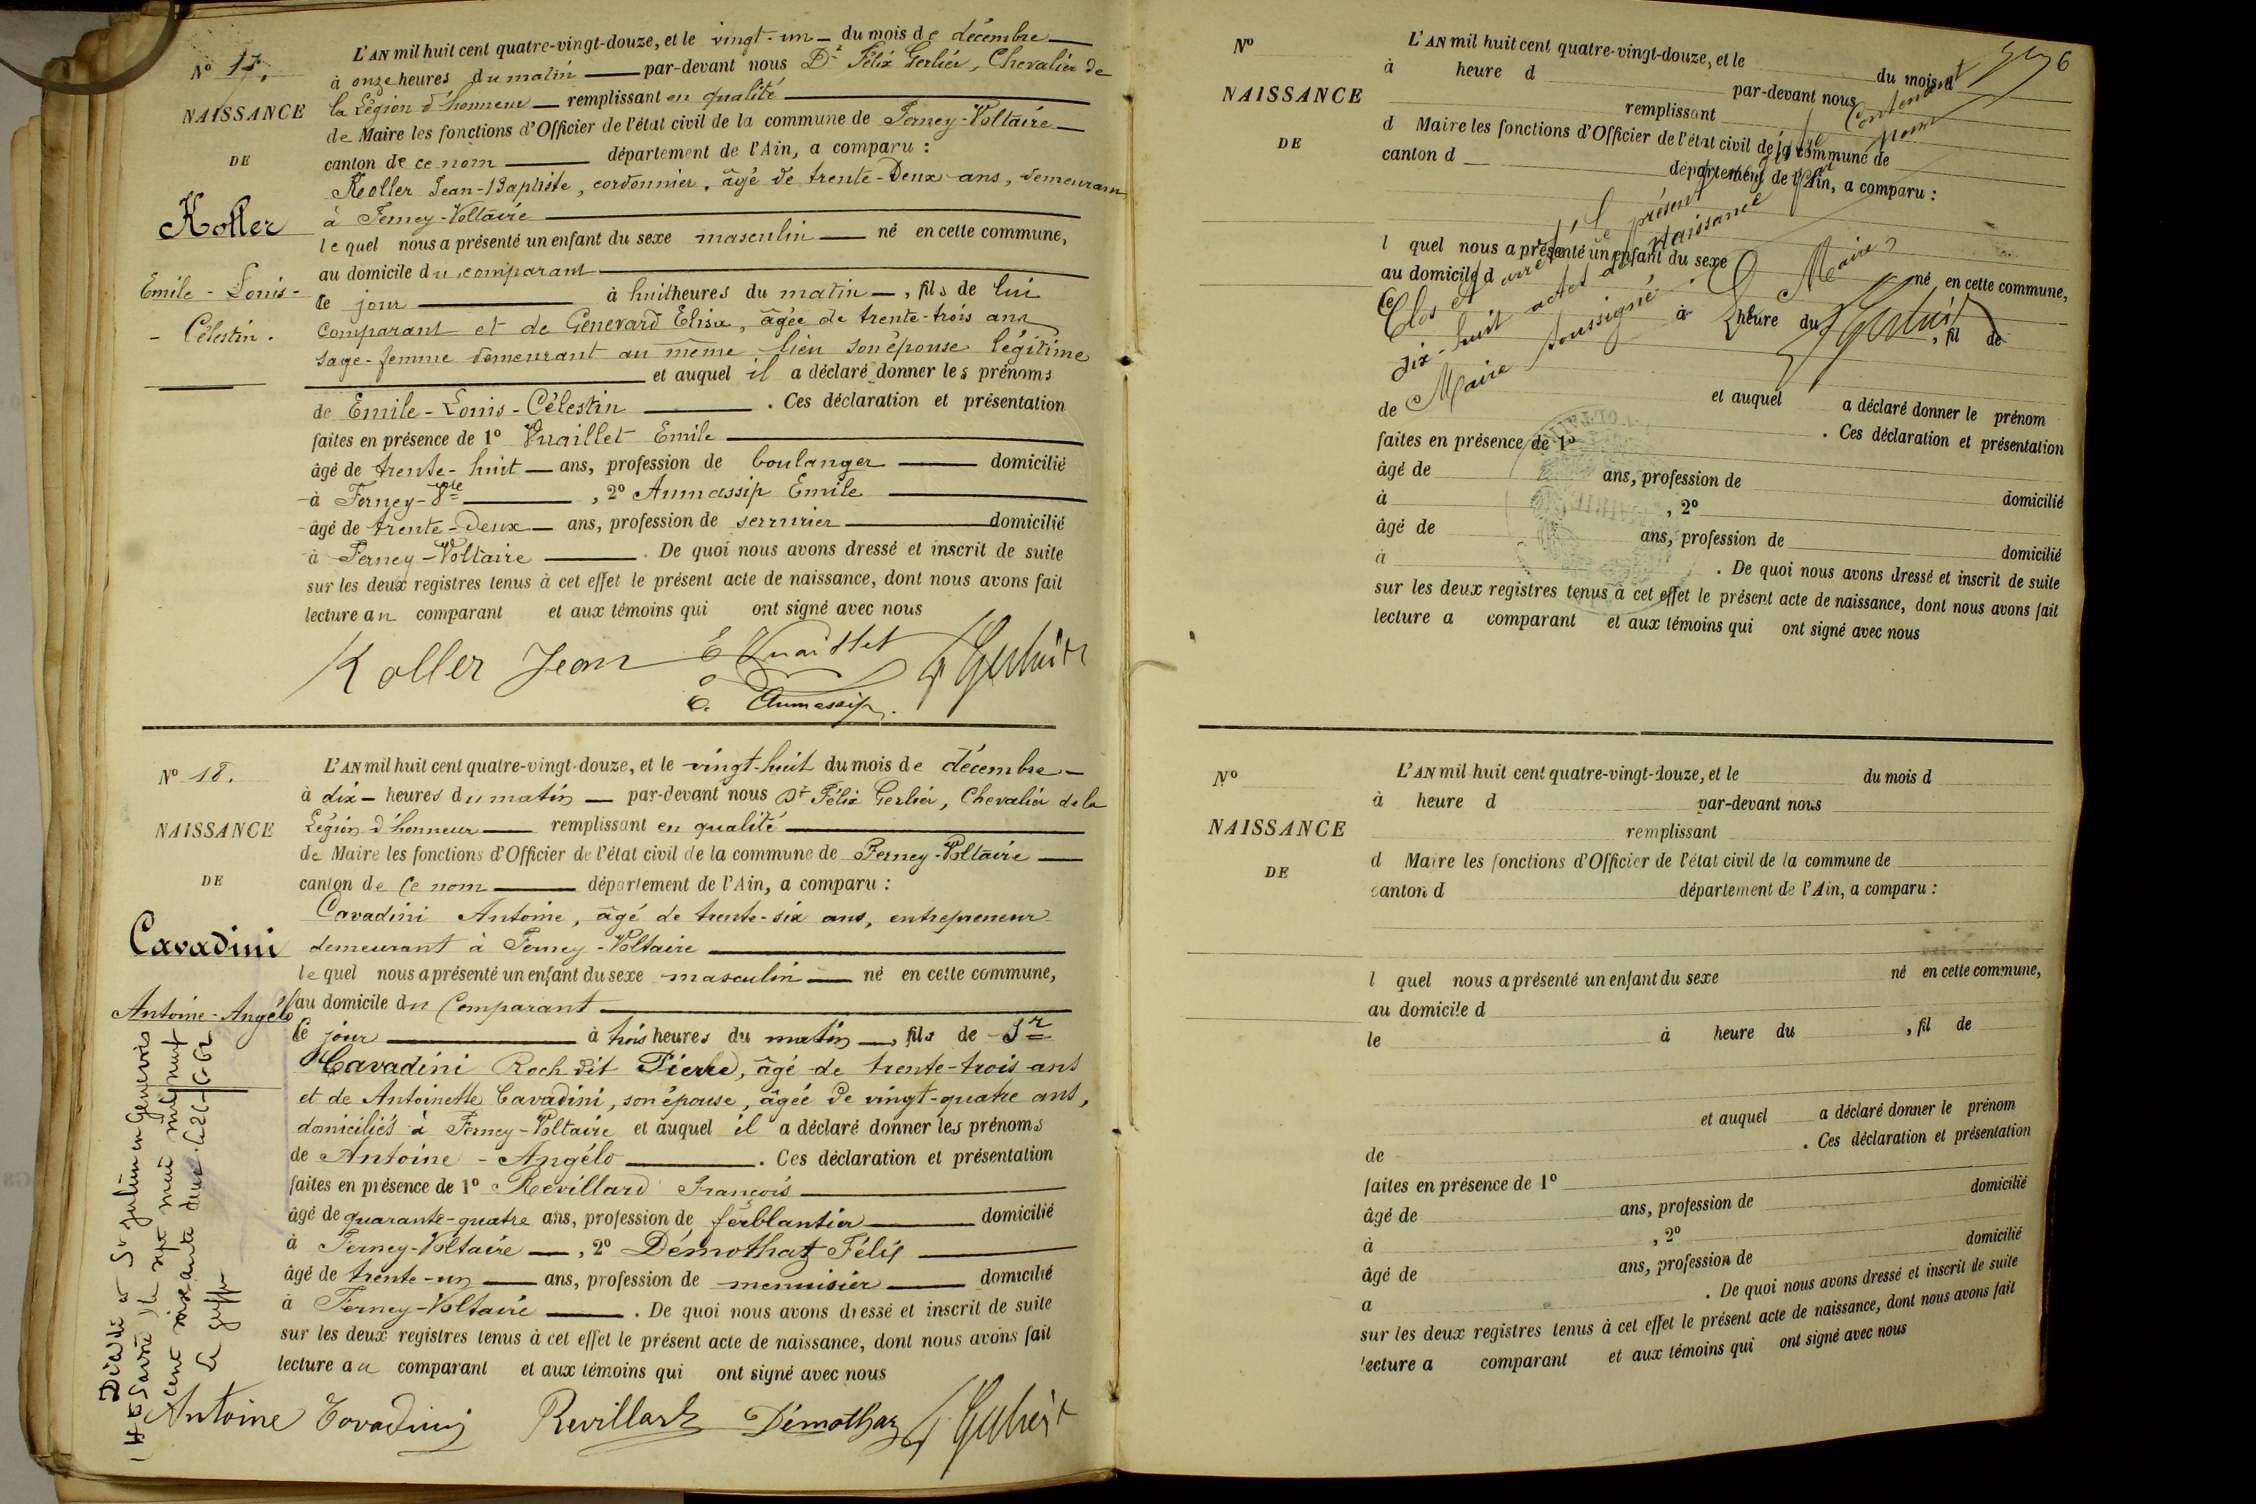 N° 17.
NAISSANCE
DE
Koller
Emile - Louis -
- Célestin .
L'AN mil huit cent quatre-vingt-douze, et le vingt-un du mois de décembre
à onze heures du matin par-devant nous Dr Félix Gerlier, Chevalier de
la Légion d'honneur remplissant en qualité
de Maire les fonctions d'Officier de l'état civil de la commune de Ferney-Voltaire
canton de ce nom département de l'Ain, a comparu :
Koller Jean-Baptiste, cordonnier, âgé de trente-deux ans, demeurant
à Ferney-Voltaire
lequel nous a présenté un enfant du sexe masculin né en cette commune,
au domicile du comparant
ce jour à huit heures du matin, fils de lui
comparant et de Genevard Elisa, âgée de trente-trois ans
sage-femme demeurant au même lieu son épouse légitime
et auquel il a déclaré donner les prénoms
de Emile-Louis-Célestin . Ces déclaration et présentation
faites en présence de 1° Vuaillet Emile
âgé de trente-huit ans, profession de boulanger domicilié
à Ferney-Vre , 2° Aumassip Emile
âgé de trente-deux ans, profession de serrurier domicilié
à Ferney-Voltaire . De quoi nous avons dressé et inscrit de suite
sur les deux registres tenus à cet effet le présent acte de naissance, dont nous avons fait
lecture au comparant et aux témoins qui ont signé avec nous
Koller Jean E Vuaillet F Gerlier
E. Aumassip
N° 18.
NAISSANCE
DE
Cavadini
Antoine-Angélo
L'AN mil huit cent quatre-vingt-douze, et le vingt-huit du mois de décembre
à dix heures du matin par-devant nous Dr Félix Gerlier, Chevalier de la
Légion d'honneur remplissant en qualité
de Maire les fonctions d'Officier de l'état civil de la commune de Ferney-Voltaire
canton de ce nom département de l'Ain, a comparu :
Cavadini Antoine, âgé de trente-six ans, entrepreneur
demeurant à Ferney-Voltaire
lequel nous a présenté un enfant du sexe masculin né en cette commune,
au domicile du Comparant
ce jour à trois heures du matin, fils de Sr
Cavadini Roch dit Pierre, âgé de trente-trois ans
et de Antoinette Cavadini, son épouse, âgée de vingt-quatre ans,
domiciliés à Ferney-Voltaire et auquel il a déclaré donner les prénoms
de Antoine-Angélo . Ces déclaration et présentation
faites en présence de 1° Revillard François
âgé de quarante-quatre ans, profession de ferblantier domicilié
à Ferney-Voltaire , 2° Démothaz Félix
âgé de trente-un ans, profession de menuisier domicilié
à Ferney-Voltaire . De quoi nous avons dressé et inscrit de suite
sur les deux registres tenus à cet effet le présent acte de naissance, dont nous avons fait
lecture au comparant et aux témoins qui ont signé avec nous
Antoine Cavadini Revillard Démothaz F Gerlier
Décédé à St Julien en Genevois
(Hte Savoie) le sept mai mil neuf
cent soixante deux. Le 26-6-62
Le greffier
N°
NAISSANCE
DE
L'AN mil huit cent quatre-vingt-douze, et le du mois d
à heure d par-devant nous
remplissant
d Maire les fonctions d'Officier de l'état civil de la commune de
canton d département de l'Ain, a comparu :
l quel nous a présenté un enfant du sexe né en cette commune,
au domicile d
le à heure du , fil de
et auquel a déclaré donner le prénom
de . Ces déclaration et présentation
faites en présence de 1°
âgé de ans, profession de domicilié
à , 2°
âgé de ans, profession de domicilié
à . De quoi nous avons dressé et inscrit de suite
sur les deux registres tenus à cet effet le présent acte de naissance, dont nous avons fait
lecture a comparant et aux témoins qui ont signé avec nous
Clos et arrêté le présent registre contenant
dix-huit actes de Naissance par nom
Maire soussigné.
Le Maire
F Gerlier
N°
NAISSANCE
DE
L'AN mil huit cent quatre-vingt-douze, et le du mois d
à heure d par-devant nous
remplissant
d Maire les fonctions d'Officier de l'état civil de la commune de
canton d département de l'Ain, a comparu :
l quel nous a présenté un enfant du sexe né en cette commune,
au domicile d
le à heure du , fil de
et auquel a déclaré donner le prénom
de . Ces déclaration et présentation
faites en présence de 1°
âgé de ans, profession de domicilié
à , 2°
âgé de ans, profession de domicilié
a . De quoi nous avons dressé et inscrit de suite
sur les deux registres tenus à cet effet le présent acte de naissance, dont nous avons fait
lecture a comparant et aux témoins qui ont signé avec nous